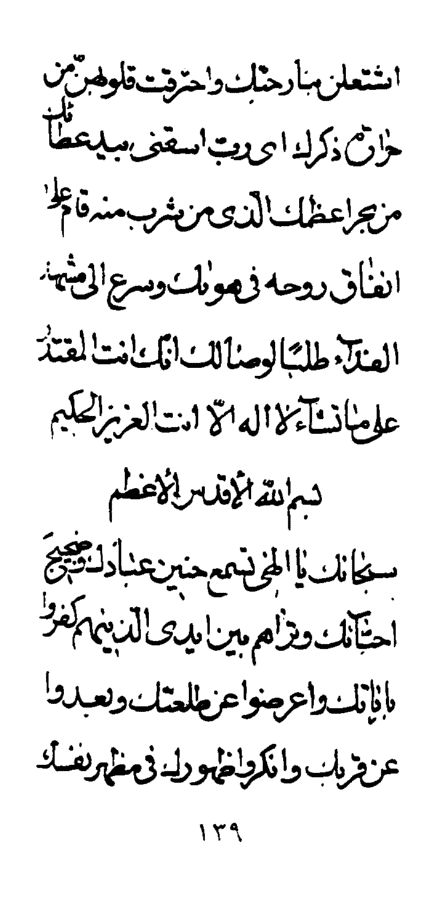 اشتعلن بنار حبّك واحترقت قلوبهنّ من
حرقة ذكرك ای ربّ اسقنی بید عطائک
من بحر اعظمک الّذی من شرب منه قام علی
انفاق روحه فی هوائک وسرع الی مشهد
الفدآء طلبًا لوصالک انّک انت المقتدر
علی ما تشآء لا اله الّا انت العزیز الحکیم
بسم الله الأقدس الأعظم
سبحانک یا الهی تسمع حنین عبادک وضجیج
احبّآئک وتراهم بین ایدی الّذینهم کفروا
بایاتک واعرضوا عن طلعتک وبعدوا
عن قربک وانکروا ظهورک فی مظهر نفسک
١٣٩